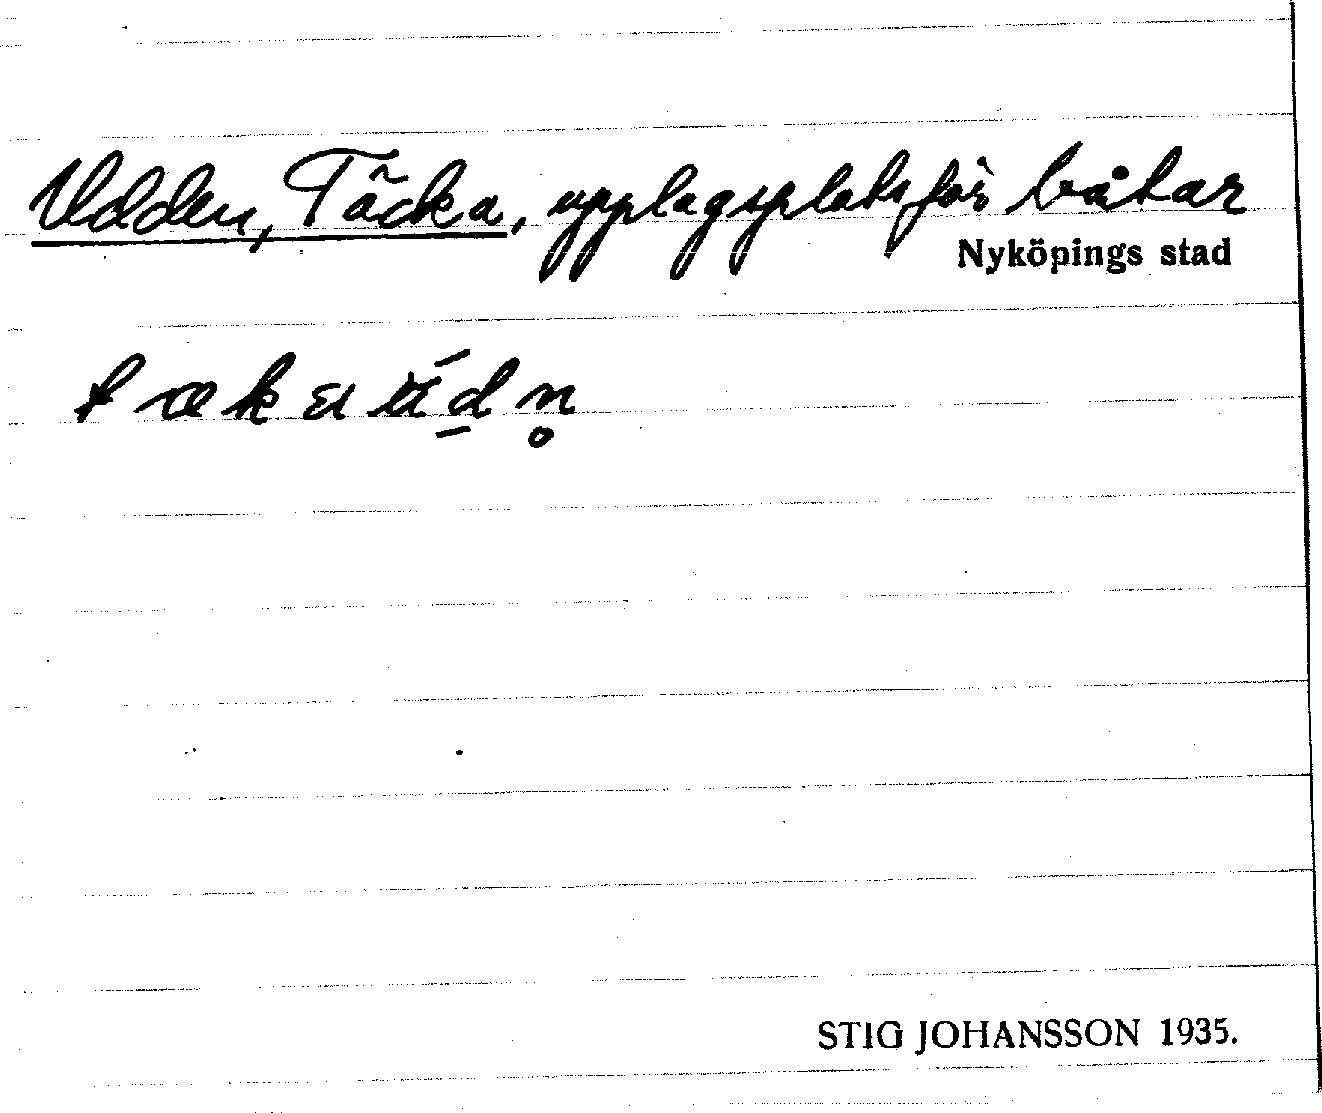 Udden, Täcka, upplagsplats för båtar
Nyköpings stad
STIG JOHANSSON 1935.